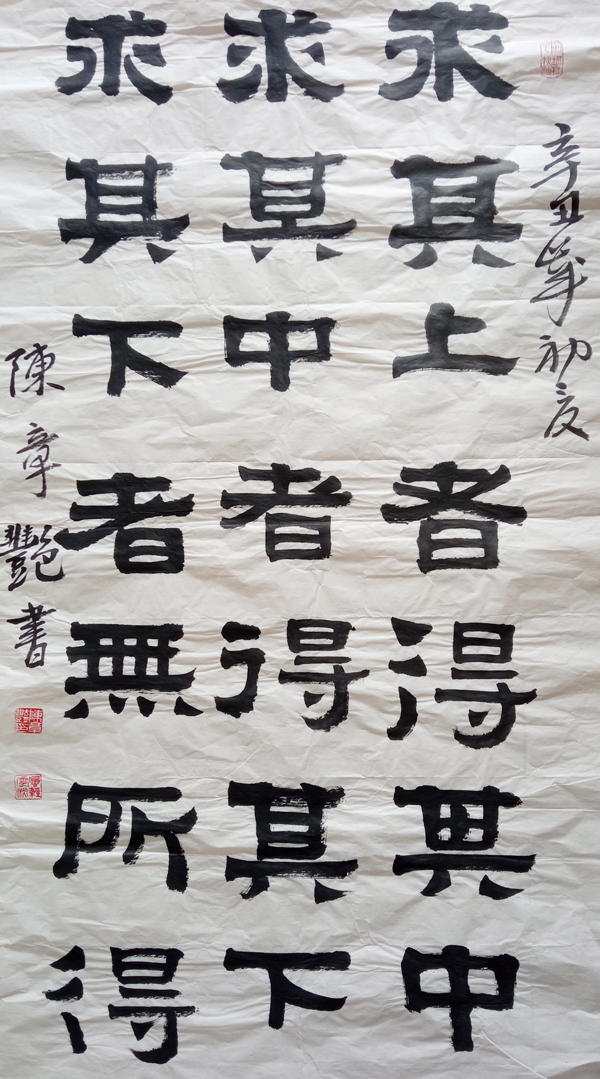 辛丑歲初夏
求其上者得其中
求其中者得其下
求其下者無所得
陳章艷書